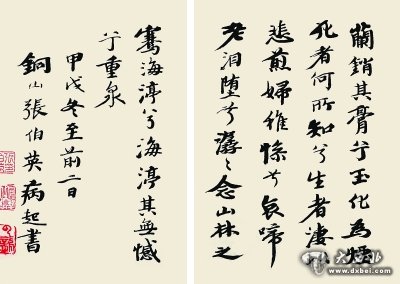 蘭銷其膏兮玉化為煙
死者何所知兮生者凄
悲煎婦稚兮哀啼
老泪堕兮潺〻念山林之
騫海渟兮海渟其無憾
兮重泉
甲戌冬至前二日
銅山張伯英病起書
www.dxbei.com